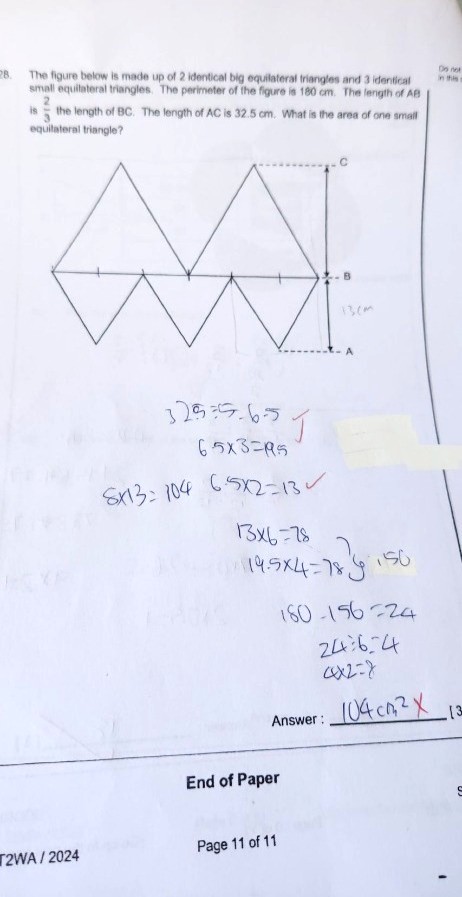 28. The figure below is made up of 2 identical big equilateral triangles and 3 identical
small equilateral triangles. The perimeter of the figure is 180 cm. The length of AB
is 2/3 the length of BC. The length of AC is 32.5 cm. What is the area of one small
equilateral triangle?
Do not
in this
C
B
13cm
A
32.5÷5=6.5
6.5x3=19.5
8x13=104 6.5x2=13
13x6=78
19.5x4=78 156
180-156=24
24÷6=4
4x2=8
Answer : 104cm² [3
End of Paper
Page 11 of 11
T2WA / 2024